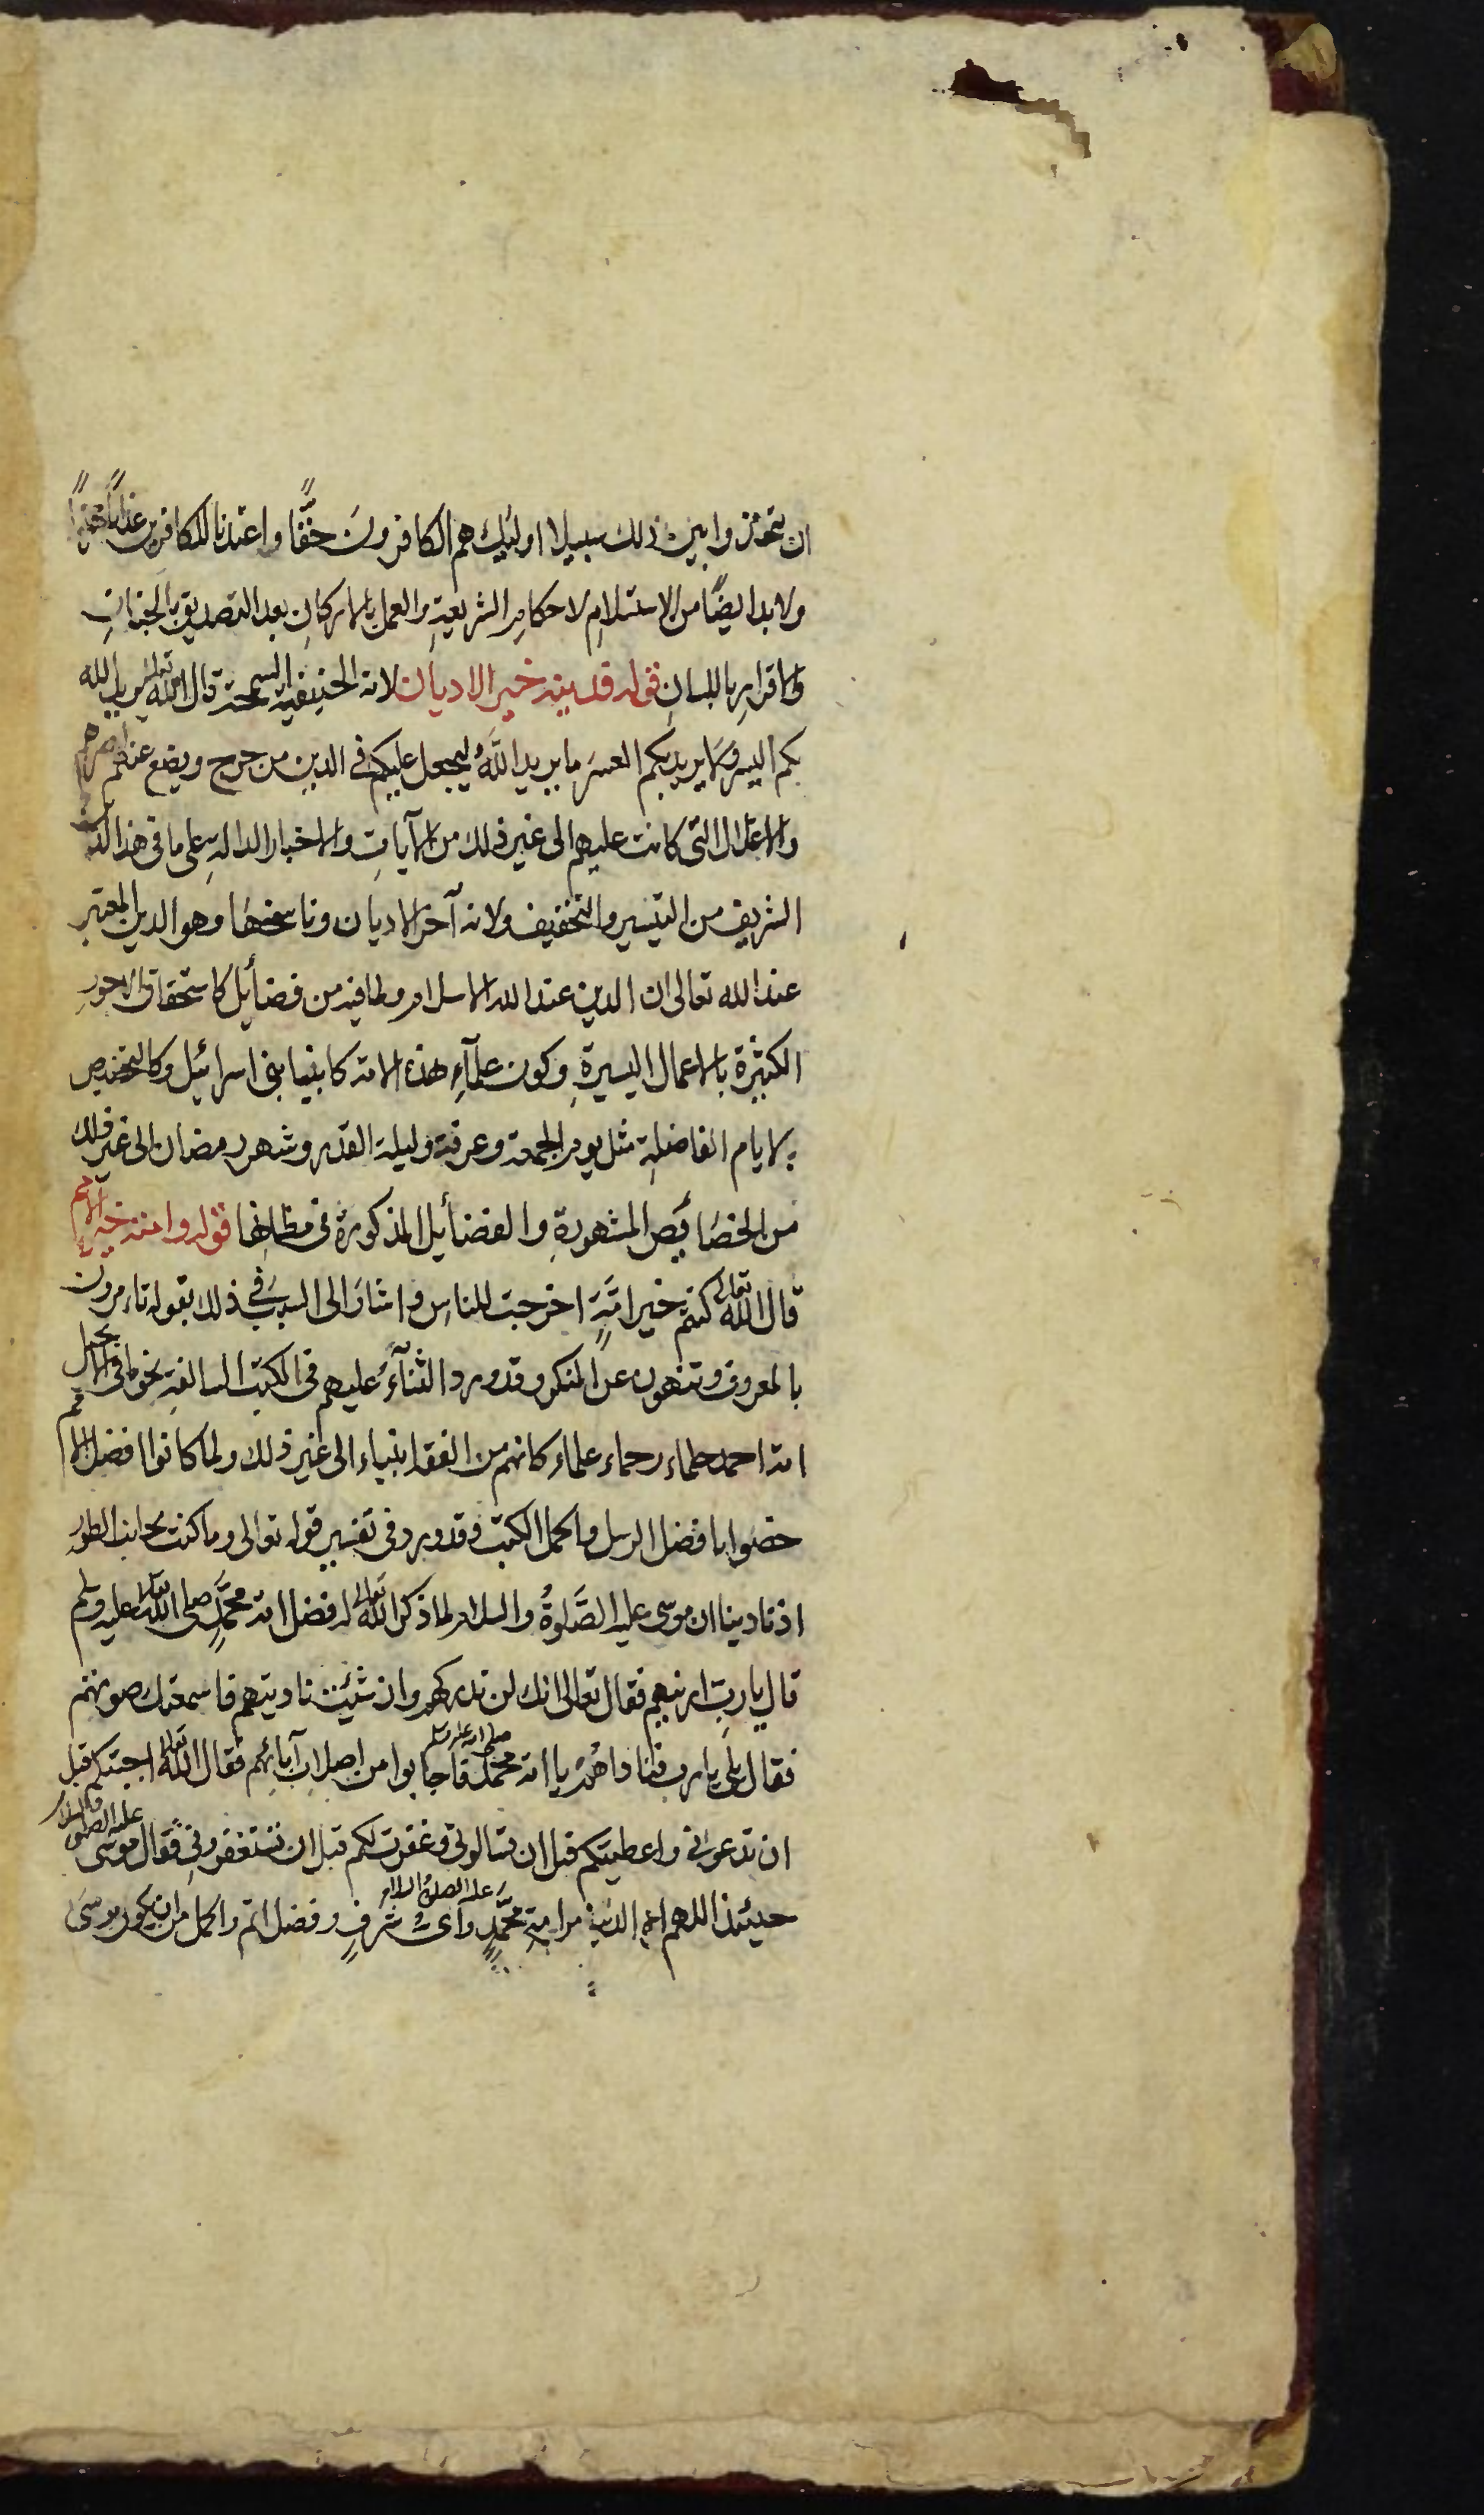 ان يتخذوا بين ذلك سبيلا اولئك هم الكافرون حقًّا واعتدنا للكافرين عذابًا مهينًا
ولا بد ايضًا من الاستسلامِ لاحكامِ الشريعةِ والعمل بالاركانِ بعد التصديق بالجنانِ
والاقرارِ باللسانِ قوله فدينه خير الاديان لانه الحنيفية السمحة قال الله تعالى يريد الله
بكم اليسر ولا يريد بكم العسرَ ما يريد اللهُ ليجعل عليكم في الدين من حرج ويضع عنهم اصرهم
والاغلال التى كانت عليهم الى غير ذلك من الآياتِ والاخبار الدالةِ على ما فى هذا الدين
الشريف من التيسير والتخفيف ولانه آخر الاديان وناسخها وهو الدين المعتبر
عند الله تعالى ان الدين عند الله الاسلام ولما فيه من فضائل كاستحقاق الاجور
الكثيرة بالاعمال اليسيرةِ وكون علمآءِ هذه الامة كانبيا بنى اسرائيل وكالتخصيص
بالايام الفاضلةِ مثل يوم الجمعة وعرفة وليلة القدر وشهر رمضان الى غير ذلك
من الخصَائص المشهورةِ والفضائل المذكورة فى مظانها قوله وامته خير الامم
قال الله تعالى كنتم خير امَّةٍ اخرجت للناسِ واشارَ الى السببِ فى ذلك بقوله تامرون
بالمعروف وتنهون عن المنكر وقد ورد الثنآءُ عليهم فى الكتب السالفةِ نحو ما فى الانجيل
امة احمد حلماء رحماء علماء كانهم من الفقه انبياء الى غير ذلك ولما كانوا افضل الامم
خصّوا بافضل الرسل واكمل الكتب وقد ورد فى تفسير قوله تعالى وما كنت بجانب الطور
اذ نادينا ان موسى عليه الصَّلوةُ والسلام لما ذكر الله تعالى له فضل امة محمَّدٍ صلى الله تعالى عليه وسلم
قال يا ربِ ارنيهم فقال تعالى انك لن تدركهم وان شئت ناديتهم فاسمعتك صوتهم
فقال بلى يا رب فنادا هم يا امة محمد صلى الله عليه وسلم فاجابوا من اصلاب آبائهم فقال الله تعالى اجبتكم قبل
ان تدعونى واعطيتكم قبل ان تسالونى وغفرت لكم قبل ان تستغفرونى فقال موسى عليه الصلوة والسلام
حينئذ اللهم من امةِ محمَّدٍ عليه الصلوة والسلام واىُّ شرفٍ وفضل اتم واكمل من ان يكون موسىَ